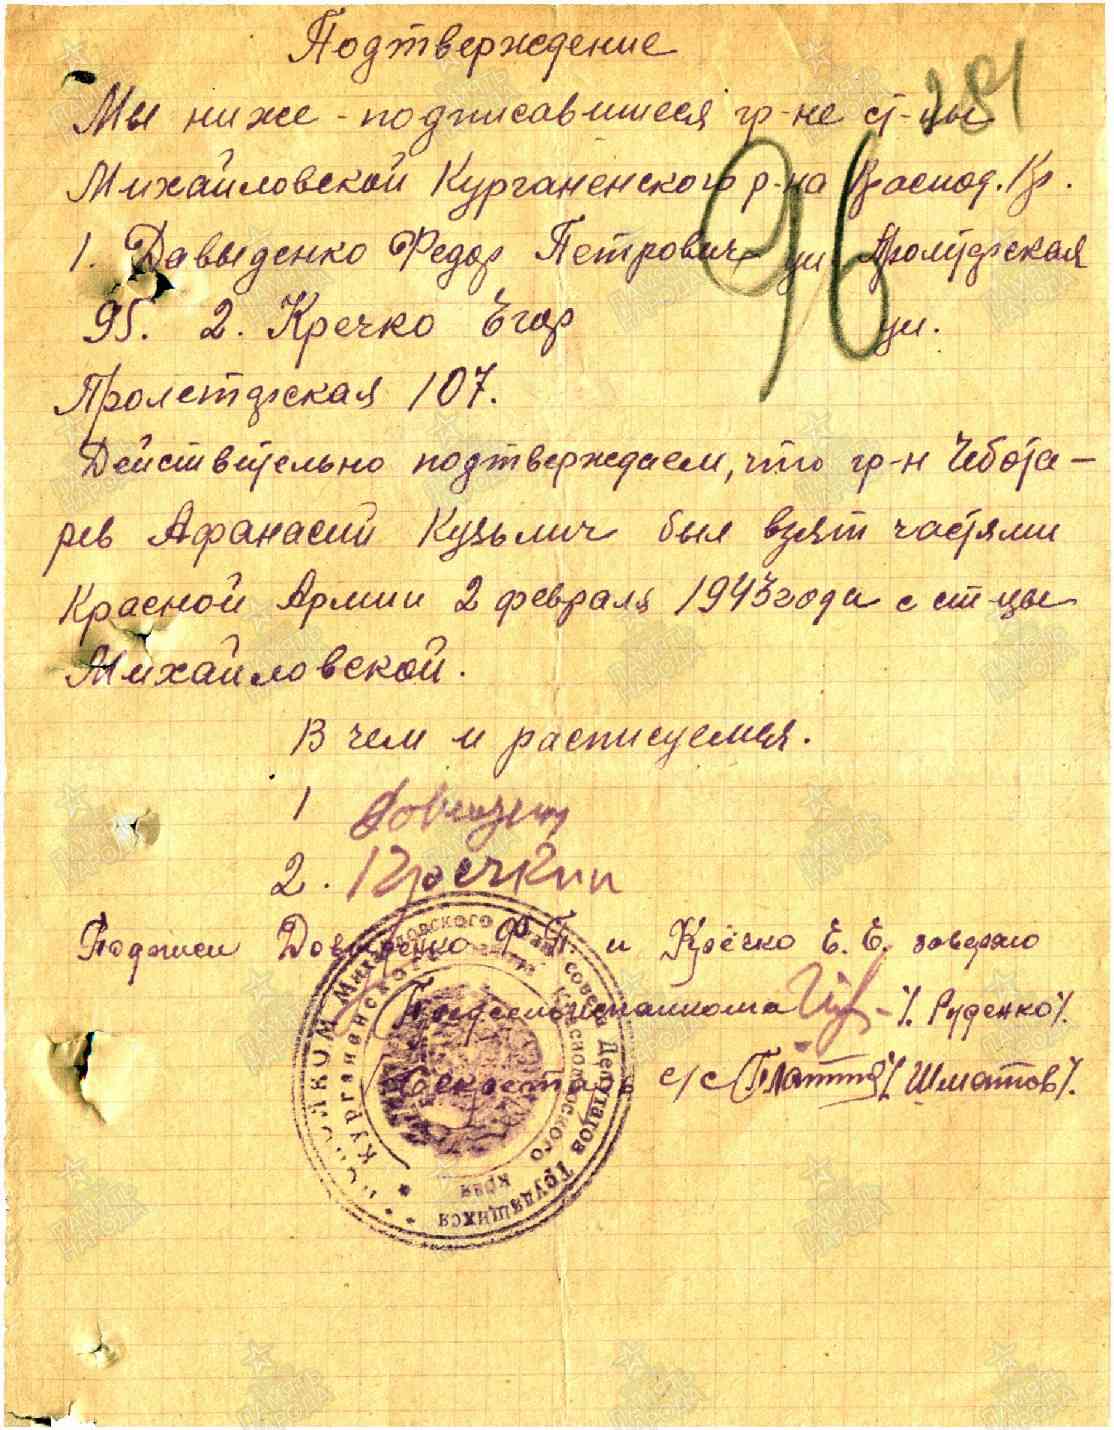 Подтверждение
281
Мы ниже-подписавшиеся гр-не ст-цы
Михайловской Курганенского р-на Краснод. Кр.
96
1. Давыденко Федор Петрович ул Пролетарская
95. 2. Кречко Егор ул.
Пролетарская 107.
Действительно подтверждаем, что гр-н Чебота-
рев Афанасий Кузьмич был взят частями
Красной Армии 2 февраля 1943 года с ст-цы
Михайловской.
В чем и расписуемся.
1
2. Кречкин
Подписи Довыденко Ф.П. и Кречко Е.Е. заверяю
Предсельисполкома /. Руденко/.
Секретарь с/с /Шматов/.
Исполком Михайловского совета Депутатов Трудящихся
Курганинского Краснодарского края
ПАМЯТЬ НАРОДА